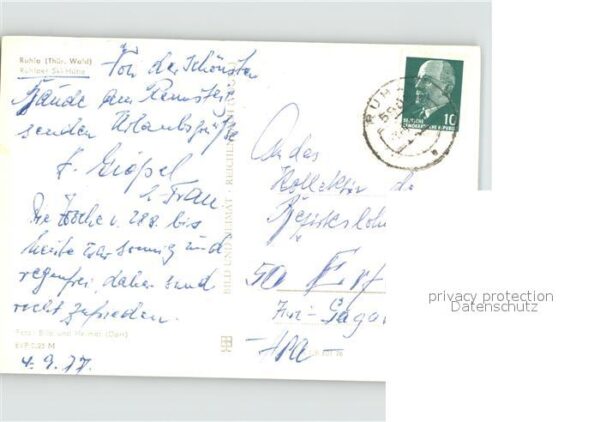 Ruhla (Thür. Wald)
Ruhlaer Skihütte
Von der schönsten
am Rennsteig
senden Urlaubsgrüße
F.
u. Frau
Die Woche v. 28.8. bis
heute war sonnig und
regenfrei, daher sind
recht zufrieden.
Foto: Bild und Heimat (Darr)
EVP 0,25 M
4.9.77
BILD UND HEIMAT · REICHENBACH
RUHLA
DEUTSCHE
DEMOKRATISCHE REPUBLIK
10
An das
Kollektiv de
Bezirks
50 Erf
Juri-Gagar
privacy protection
Datenschutz